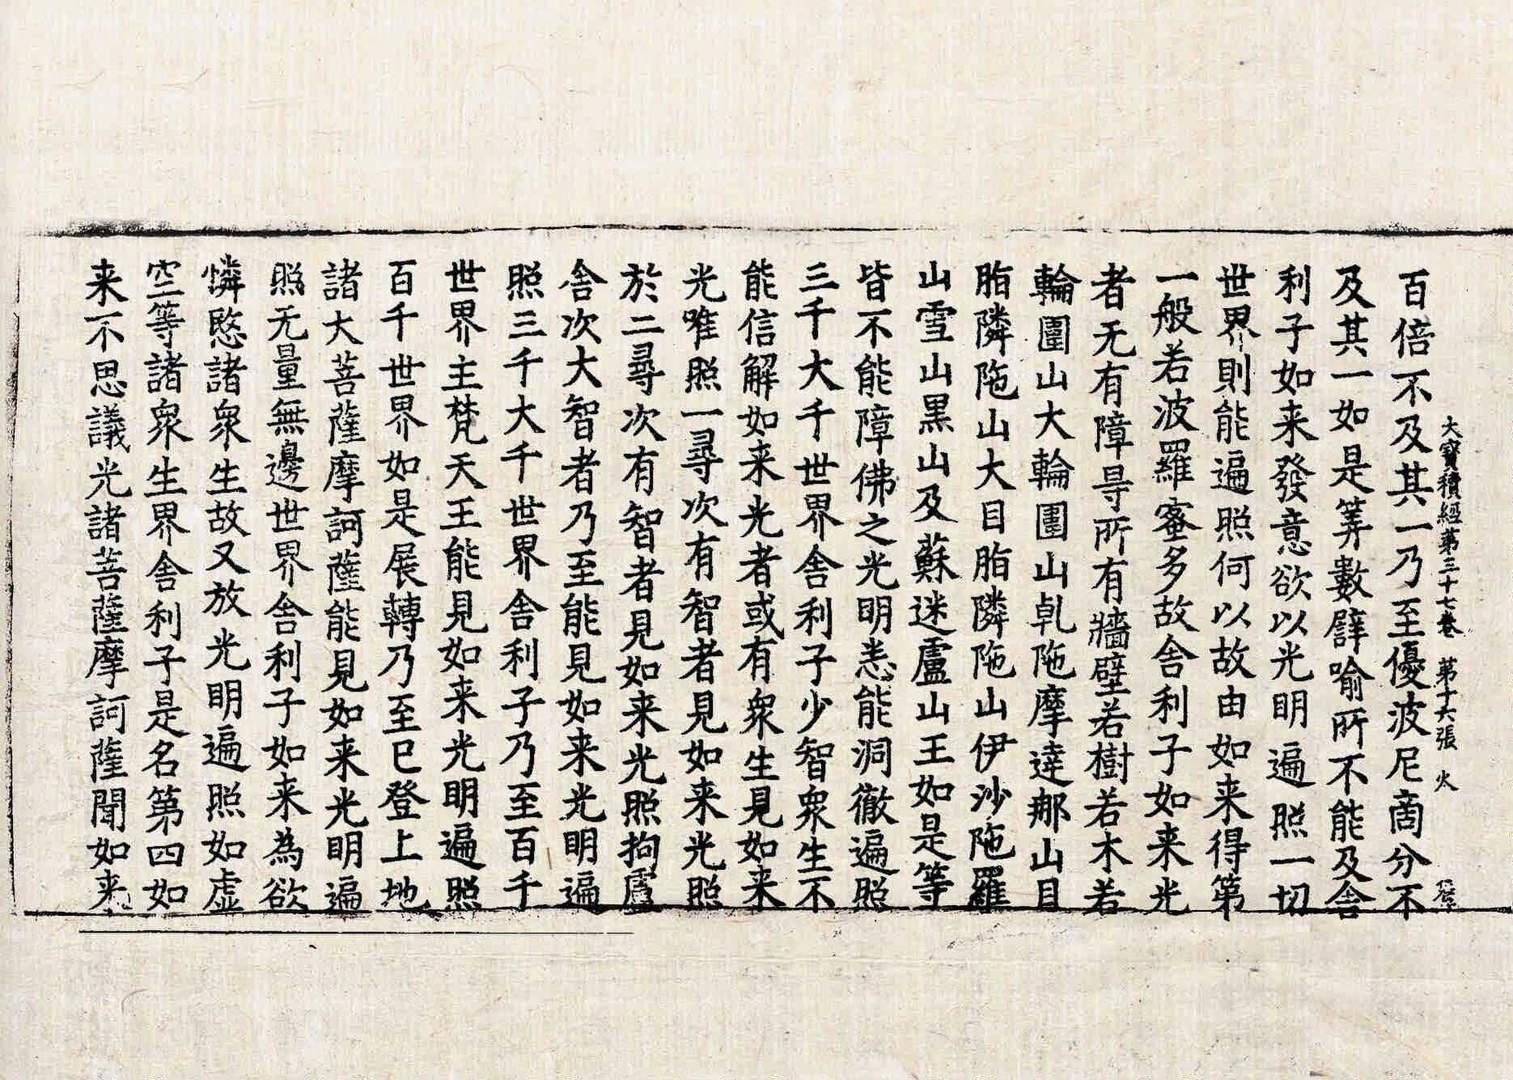 大寶積經第三十七卷　第十六張　火
百倍不及其一乃至優波尼啇分不
及其一如是筭數譬喻所不能及舎
利子如来發意欲以光明遍照一切
世界則能遍照何以故由如来得第
一般若波羅蜜多故舎利子如来光
者无有障㝵所有牆壁若樹若木若
輪圍山大輪圍山乹陁摩達那山目
脂隣陁山大目脂隣陁山伊沙陁羅
山雪山黒山及蘇迷盧山王如是等
皆不能障佛之光明恙能洞徹遍照
三千大千世界舎利子少智衆生不
能信解如来光者或有衆生見如来
光唯照一尋次有智者見如来光照
於二尋次有智者見如来光照拘盧
舎次大智者乃至能見如来光明遍
照三千大千世界舎利子乃至百千
世界主梵天王能見如来光明遍照
百千世界如是展轉乃至巳登上地
諸大菩薩摩訶薩能見如来光明遍
照无量無邊世界舎利子如来為欲
憐愍諸衆生故又放光明遍照如虚
空等諸衆生界舎利子是名第四如
来不思議光諸菩薩摩訶薩聞如来